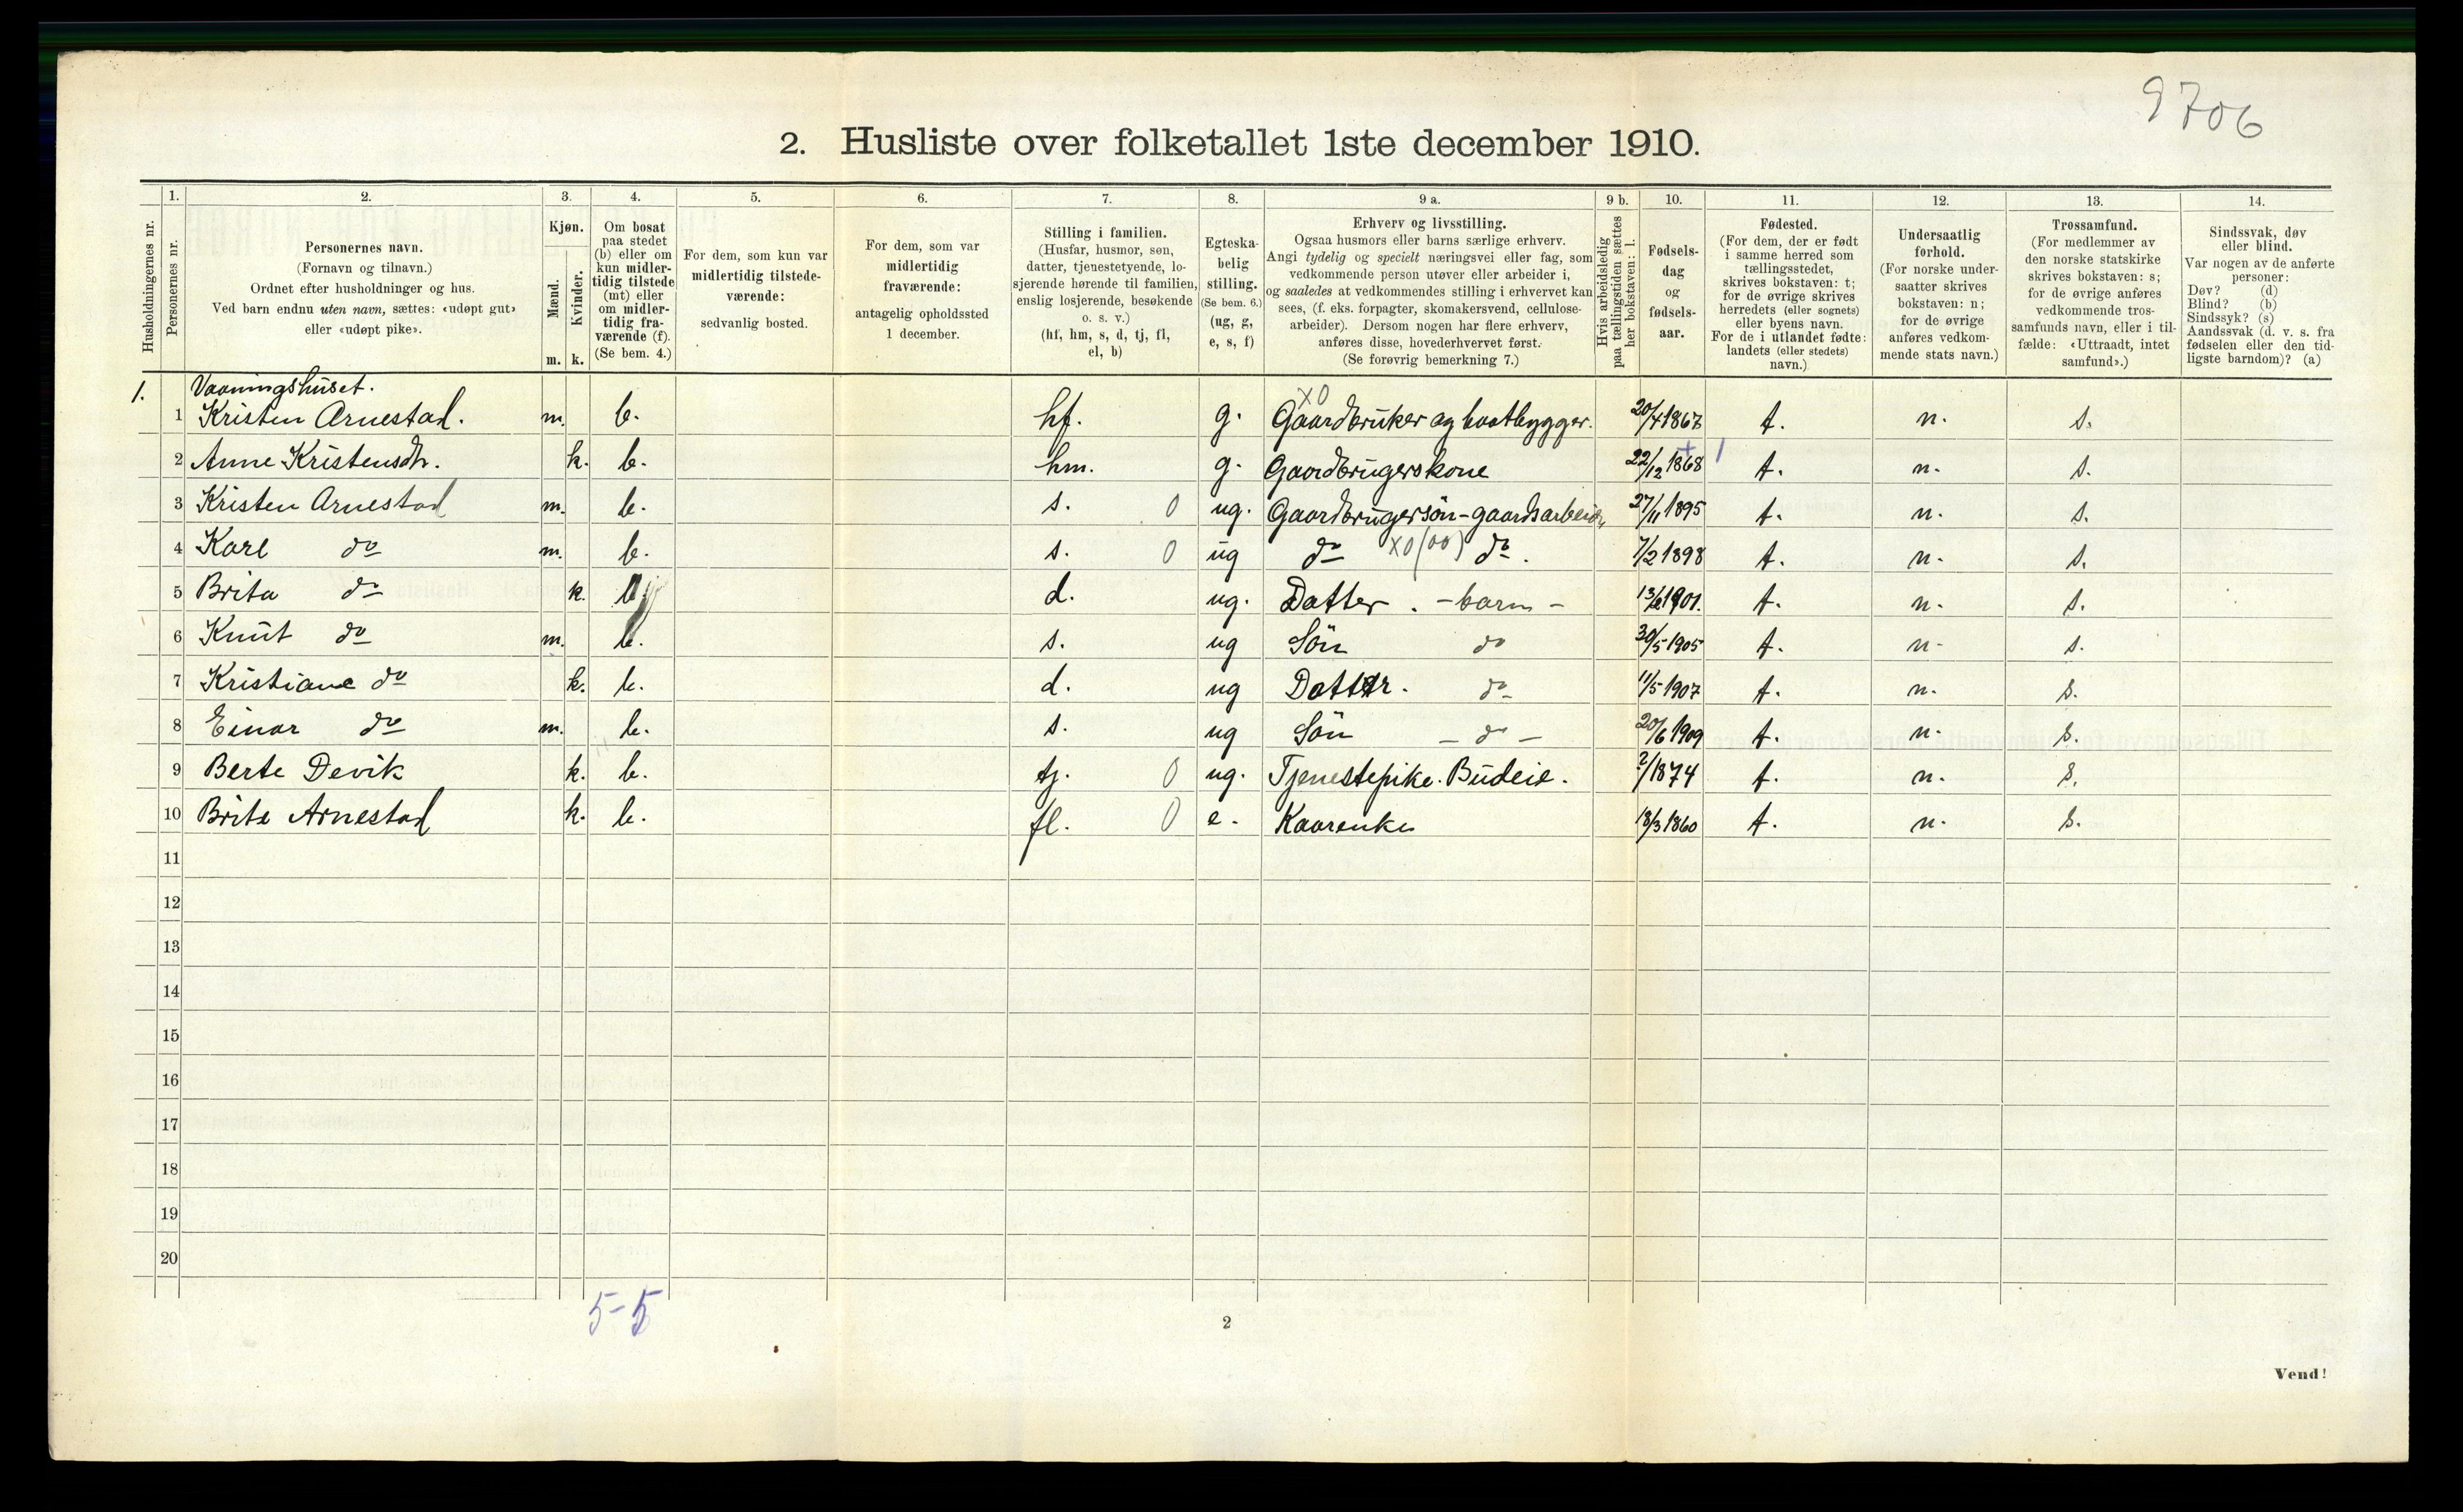 9706
2. Husliste over folketallet 1ste december 1910.
Husholdningernes nr.
1.
Personernes nr.
2.
Personernes navn.
(Fornavn og tilnavn.)
Ordnet efter husholdninger og hus.
Ved barn endnu uten navn, sættes: «udøpt gut»
eller «udøpt pike».
3.
Kjøn.
Mænd.
Kvinder.
m. k.
4.
Om bosat
paa stedet
(b) eller om
kun midler-
tidig tilstede
(mt) eller
om midler-
tidig fra-
værende (f).
(Se bem. 4.)
5.
For dem, som kun var
midlertidig tilstede-
værende:
sedvanlig bosted.
6.
For dem, som var
midlertidig
fraværende:
antagelig opholdssted
1 december.
7.
Stilling i familien.
(Husfar, husmor, søn,
datter, tjenestetyende, lo-
sjerende hørende til familien,
enslig losjerende, besøkende
o. s. v.)
(hf, hm, s, d, tj, fl,
el, b)
8.
Egteska-
belig
stilling.
(Se bem. 6.)
(ug, g,
e, s, f)
9 a.
Erhverv og livsstilling.
Ogsaa husmors eller barns særlige erhverv.
Angi tydelig og specielt næringsvei eller fag, som
vedkommende person utøver eller arbeider i,
og saaledes at vedkommendes stilling i erhvervet kan
sees, (f. eks. forpagter, skomakersvend, cellulose-
arbeider). Dersom nogen har flere erhverv,
anføres disse, hovederhvervet først.
(Se forøvrig bemerkning 7.)
9 b.
Hvis arbeidsledig
paa tællingstiden sættes
her bokstaven: l.
10.
Fødsels-
dag
og
fødsels-
aar.
11.
Fødested.
(For dem, der er født
i samme herred som
tællingsstedet,
skrives bokstaven: t;
for de øvrige skrives
herredets (eller sognets)
eller byens navn.
For de i utlandet fødte:
landets (eller stedets)
navn.)
12.
Undersaatlig
forhold.
(For norske under-
saatter skrives
bokstaven: n;
for de øvrige
anføres vedkom-
mende stats navn.)
13.
Trossamfund.
(For medlemmer av
den norske statskirke
skrives bokstaven: s;
for de øvrige anføres
vedkommende tros-
samfunds navn, eller i til-
fælde: «Uttraadt, intet
samfund».)
14.
Sindssvak, døv
eller blind.
Var nogen av de anførte
personer:
Døv? (d)
Blind? (b)
Sindssyk? (s)
Aandssvak (d. v. s. fra
fødselen eller den tid-
ligste barndom)? (a)
1. Vaaningshuset. X0
1 Kristen Arnestad. m. b. hf. g. Gaardbruker og baatbygger. 20/4 1867 t. n. s.
2 Anne Kristensdtr. k. b. hm. g. Gaardbrugerskone 22/12 1868 t. n. s.
3 Kristen Arnestad m. b. s. 0 ug. Gaardbrugersön-gaardsarbeider 27/11 1895 t. n. s.
4 Karl do m. b. s. 0 ug do X0(00) do. 7/2 1898 t. n. s.
5 Brita do k. b. d. ug. Datter. -barn- 13/6 1901. t. n. s.
6 Knut do m. b. s. ug Sön do 30/5 1905 t. n. s.
7 Kristiane do k. b. d. ug Datter. do 11/5 1907 t. n. s.
8 Einar do m. b. s. ug Sön - do - 20/6 1909 t. n. s.
9 Berte Devik k. b. tj. 0 ug. Tjenestepike. Budeie. ?/1874 t. n. s.
10 Brite Arnestad k. b. fl. 0 e. Kaarenke 18/3 1860 t. n. s.
11
12
13
14
15
16
17
18
19
20
5-5
2
Vend!